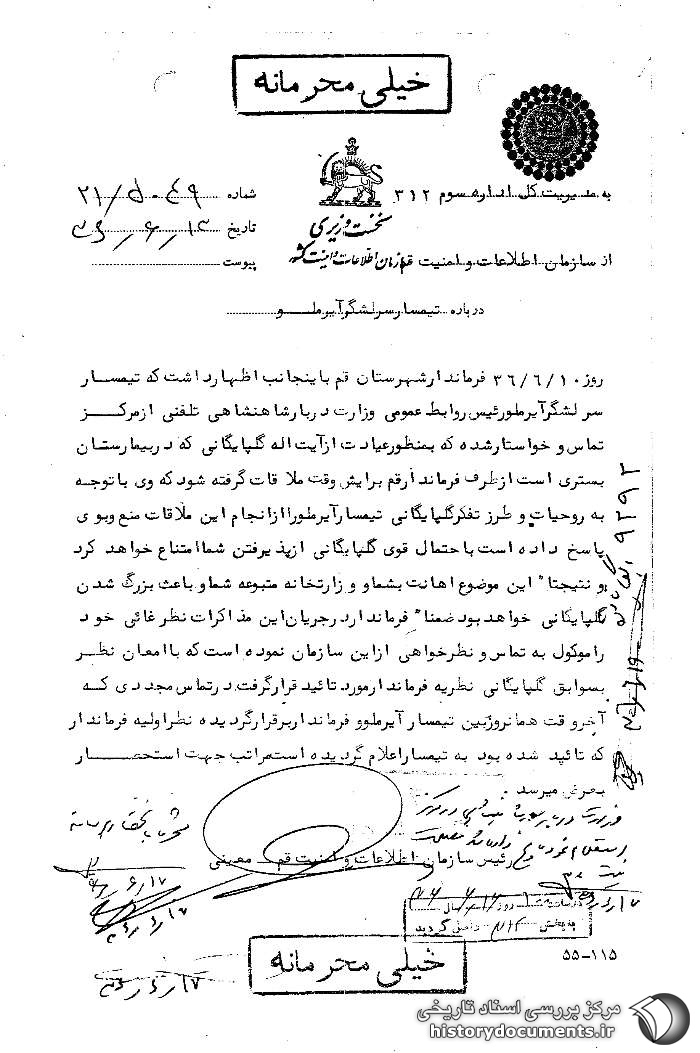 خیلی محرمانه
به مدیریت کل اداره سوم ۳۱۲
شماره ۲۱/۵۰۴۹
نخست وزیری
تاریخ ۳۶/۶/۱۳
سازمان اطلاعات و امنیت کشور
از سازمان اطلاعات و امنیت قم
پیوست
درباره تیمسار سرلشگر آیرملو
روز ۳۶/۶/۱۰ فرماندار شهرستان قم باینجانب اظهار داشت که تیمسار
سرلشگر آیرملو رئیس روابط عمومی وزارت دربار شاهنشاهی تلفنی از مرکز
تماس و خواستار شده که بمنظور عیادت از آیت اله گلپایگانی که در بیمارستان
بستری است از طرف فرماندار قم برایش وقت ملاقات گرفته شود که وی با توجه
به روحیات و طرز تفکر گلپایگانی تیمسار آیرملو را از انجام این ملاقات منع و بوی
پاسخ داده است با حتمال قوی گلپایگانی از پذیرفتن شما امتناع خواهد کرد
و نتیجتا" این موضوع اهانت بشما و وزارتخانه متبوعه شما و باعث بزرگ شدن
گلپایگانی خواهد بود ضمنا" فرماندار در جریان این مذاکرات نظر غائی خود
را موکول به تماس و نظرخواهی از این سازمان نموده است که با امعان نظر
بسوابق گلپایگانی نظریه فرماندار مورد تائید قرار گرفت در تماس مجددی که
آخر وقت همانروز بین تیمسار آیرملو و فرماندار برقرار گردیده نظر اولیه فرماندار
که تائید شده بود به تیمسار اعلام گردیده است مراتب جهت استحضار
بعرض میرسد
رئیس سازمان اطلاعات و امنیت قم - معینی
۳۶/۶/۱۷
۳۶/۶/۱۷
بخش ۳۱۲ واصل گردید
۵۵-۱۱۵
خیلی محرمانه
۳۶/۶/۱۷
۹۲۹۲
مرکز بررسی اسناد تاریخی
historydocuments.ir